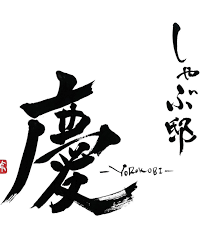 しゃぶ邸
慶
-YOROKOBI-